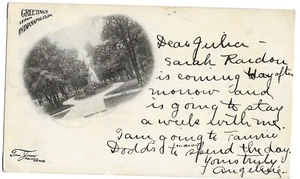 GREETINGS
FROM
INDIANAPOLIS
Dear Julia -
Sarah Raridon
is coming day after
morrow and
is going to stay
a week with me.
I am going to Fannie
Dodds to
morrow
to spend the day.
Yours truly
Angeline.